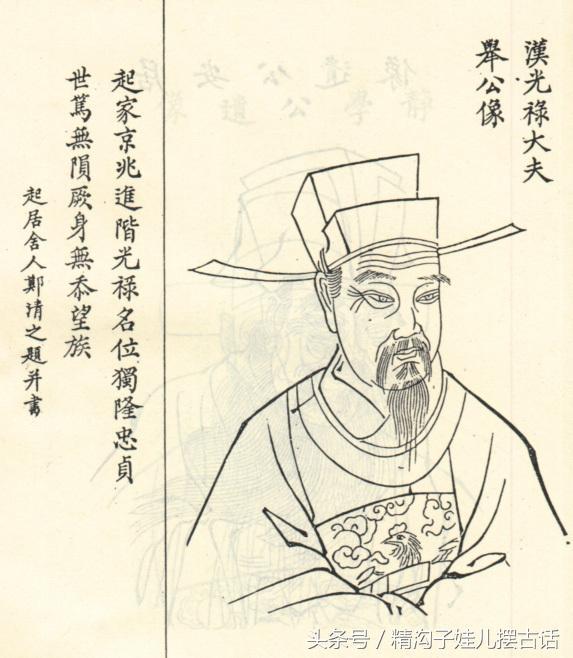 漢光祿大夫
舉公像
起家京兆進階光祿名位獨隆忠貞
世篤無隕厥身無忝望族
起居舍人鄭清之題并書
头条号/精沟子娃儿摆古话